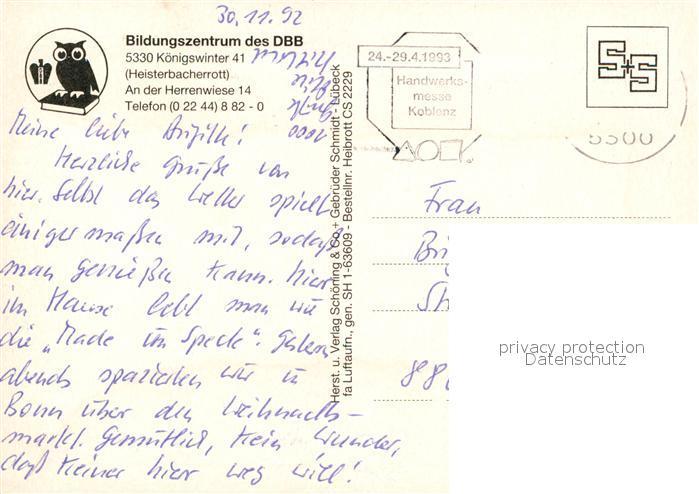 30.11.92
Bildungszentrum des DBB
5330 Königswinter 41
(Heisterbacherrott)
An der Herrenwiese 14
Telefon (0 22 44) 8 82 - 0
Meine liebe
Herzliche Grüße von
hier. Selbst das Wetter spielt
einigermaßen mit, sodaß
man genießen kann. Hier
im Hause lebt man wie
die „Made im Speck". Gestern
abends spazierten wir in
Bonn über den Weihnachts-
markt. Gemütlich, kein Wunder,
daß keiner hier weg will!
Herst. u. Verlag Schöning & Co.+ Gebrüder Schmidt - Lübeck
fa Luftaufn., gen. SH 1-63609 · Bestellnr. Heibrott CS 2229
24.-29.4.1993
Handwerks-
messe
Koblenz
5300
S+S
Frau
privacy protection
Datenschutz